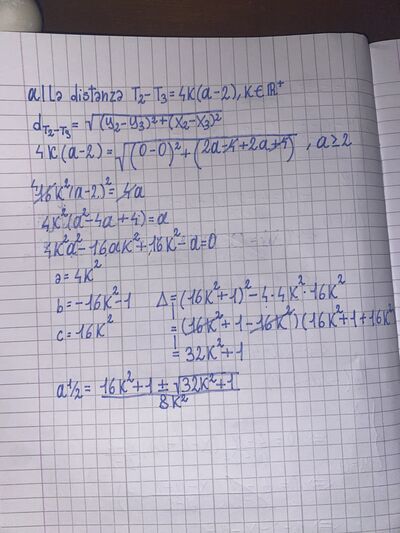 alla distanza T₂-T₃=4K(a-2), K∈ℝ⁺
d_T₂-T₃=√(y₂-y₃)²+(x₂-x₃)²
4K(a-2)=√(0-0)²+(2a-4+2a+4), a≥2
⁴16K²(a-2)²=4a
4K²(a²-4a+4)=a
4K²a²-16aK²+16K²-a=0
a=4K²
b=-16K²-1 Δ=(16K²+1)²-4·4K²·16K²
c=16K² =(16K²+1-16K²)(16K²+1+16K²
=32K²+1
a½=16K²+1±√32K²+1
8K²